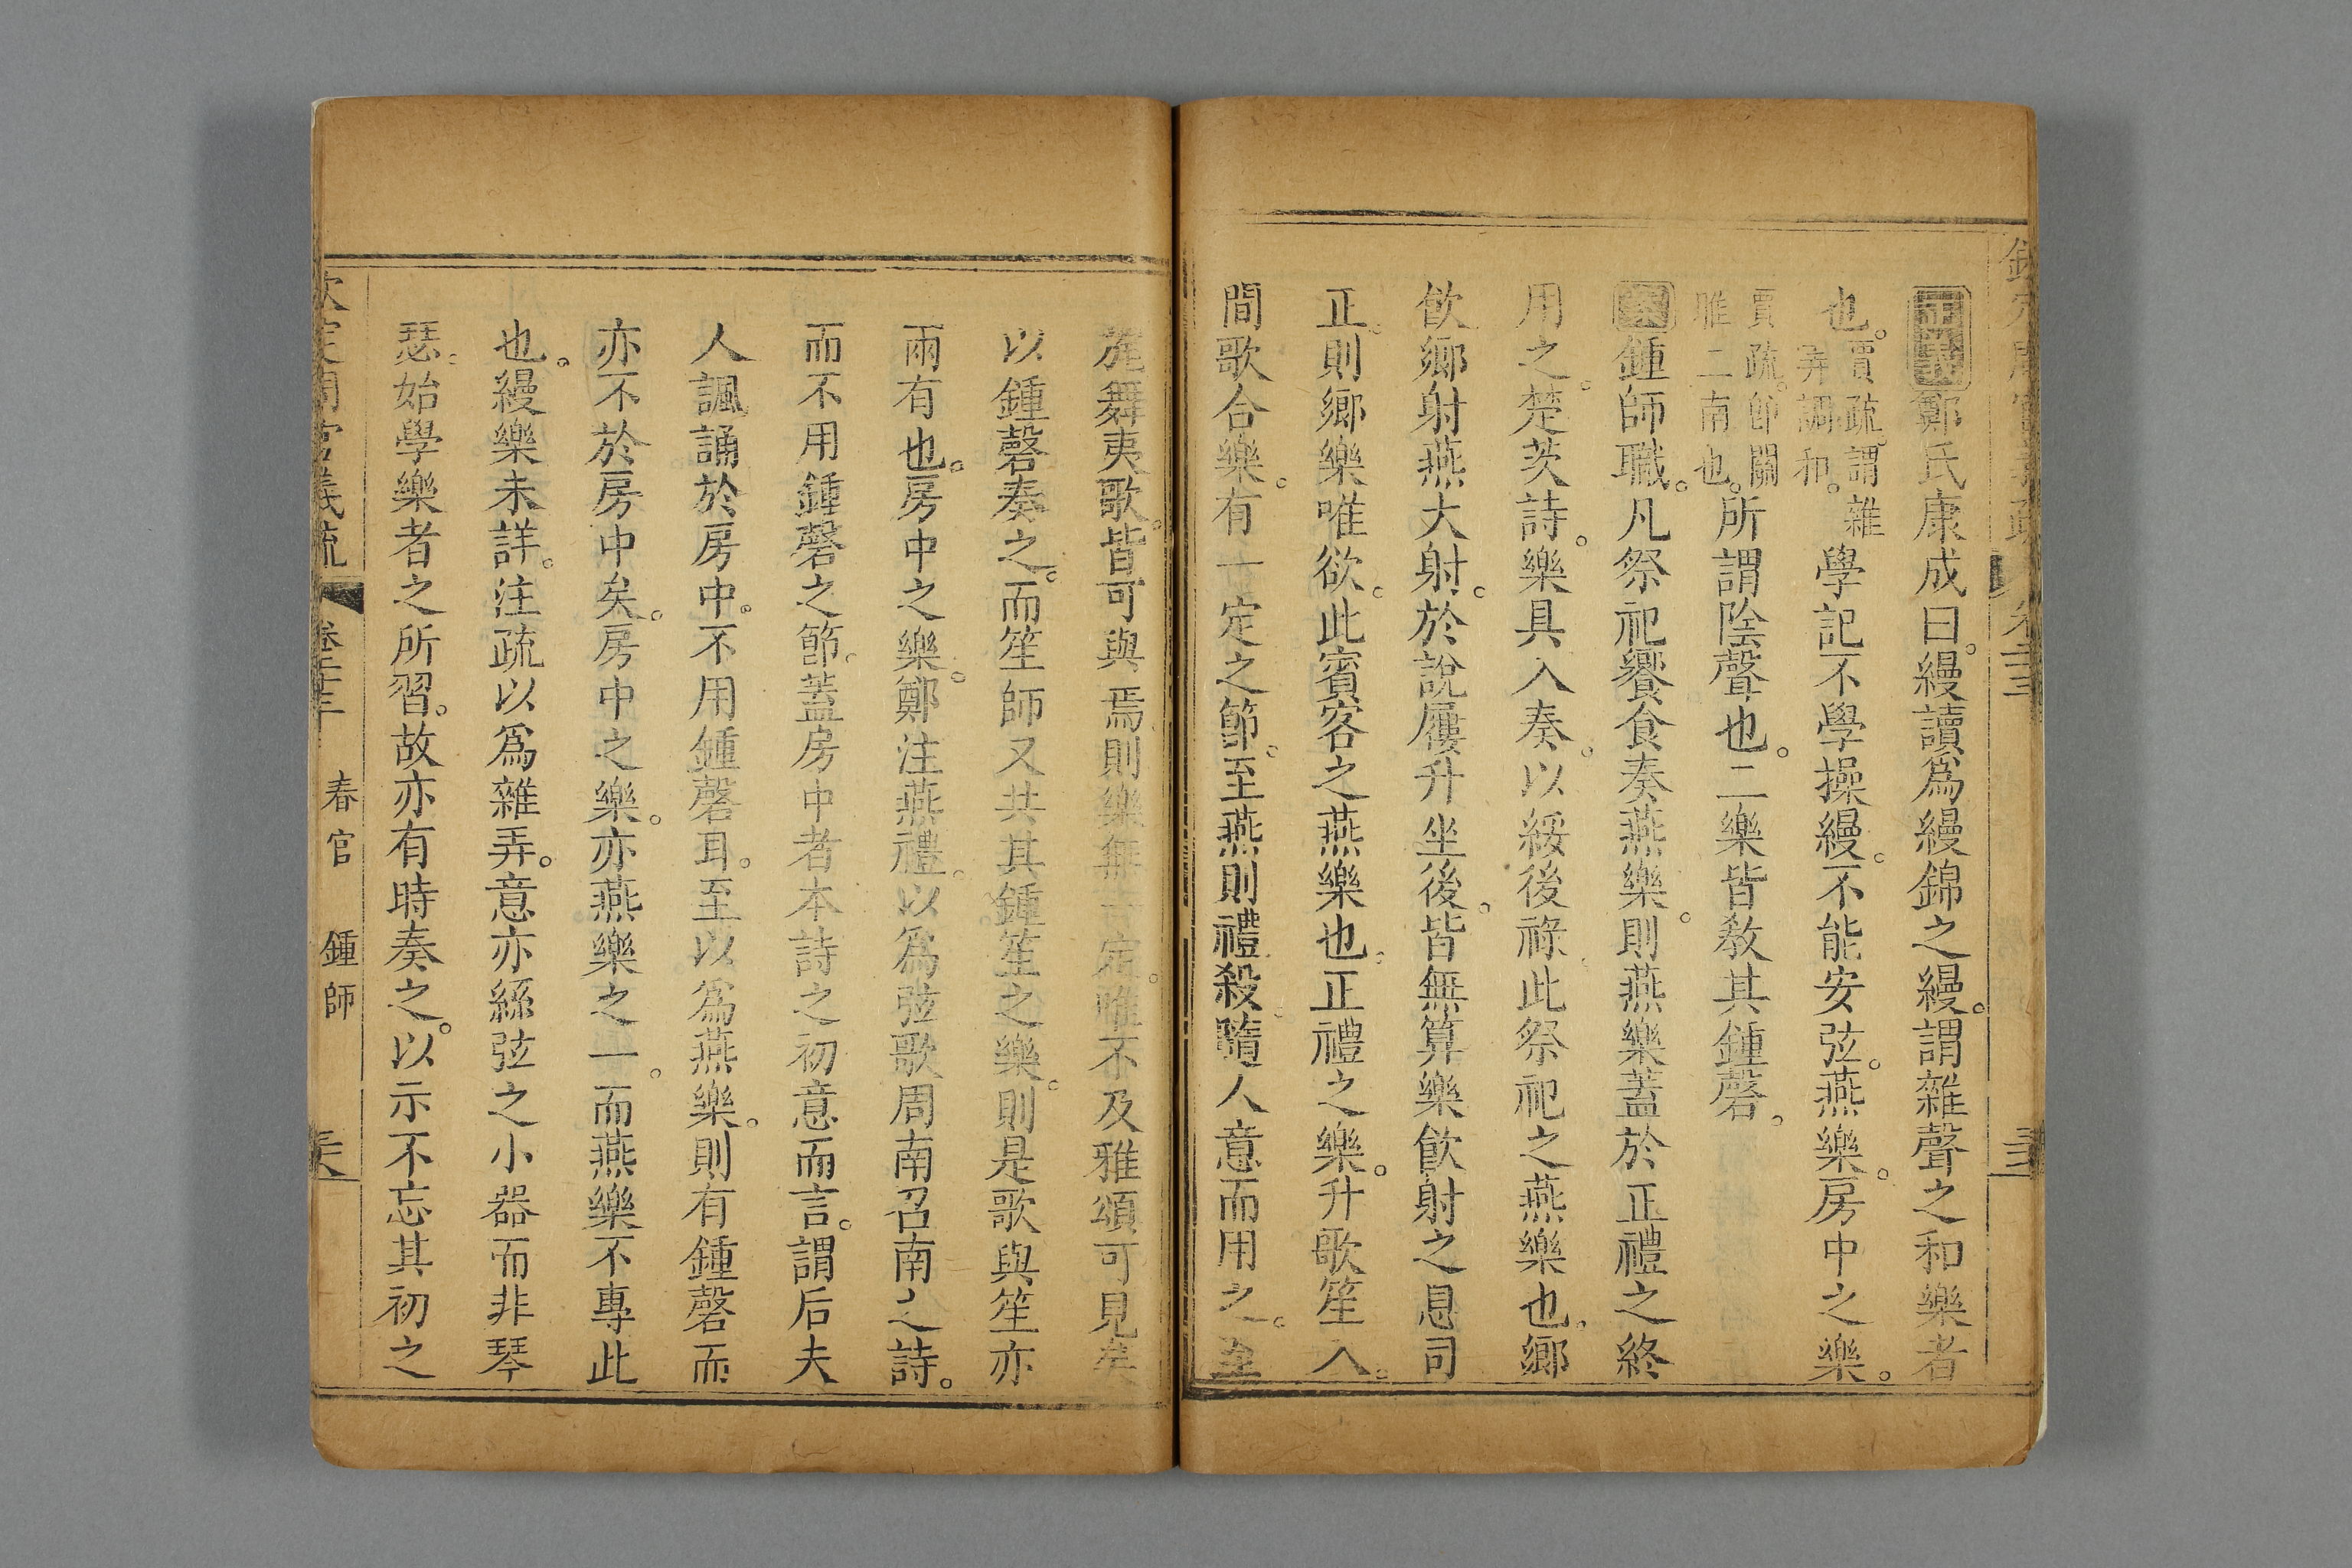 正義鄭氏康成曰。縵讀爲縵錦之縵。謂雜聲之和樂者
也。賈疏。謂雜弄調和。學記不學操縵。不能安弦。燕樂。房中之樂。
賈疏。卽關雎二南也。所謂陰聲也。二樂皆教其鍾磬。
案鍾師職。凡祭祀饗食奏燕樂。則燕樂蓋於正禮之終
用之。楚茨詩。樂具入奏。以綏後祿。此祭祀之燕樂也。鄉
飮鄉射燕大射。於說屨升坐後。皆無算樂飮射之息司
正。則鄉樂唯欲。此賓客之燕樂也。正禮之樂。升歌笙入。
間歌合樂。有一定之節。至燕則禮殺。隨人意而用之。至
旄舞夷歌。皆可與焉。則樂無定。唯不及雅頌可見矣
以鍾磬奏之。而笙師又共其鍾笙之樂。則是歌與笙亦
兩有也。房中之樂。鄭注燕禮。以爲弦歌周南召南之詩。
而不用鍾磬之節。蓋房中者本詩之初意而言。謂后夫
人諷誦於房中。不用鍾磬耳。至以爲燕樂。則有鍾磬而
亦不於房中矣。房中之樂。亦燕樂之一。而燕樂不專此
也。縵樂未詳。注疏以爲雜弄。意亦絲弦之小器而非琴
瑟。始學樂者之所習。故亦有時奏之。以示不忘其初之
欽定周官義疏 卷二十三 春官 鍾師